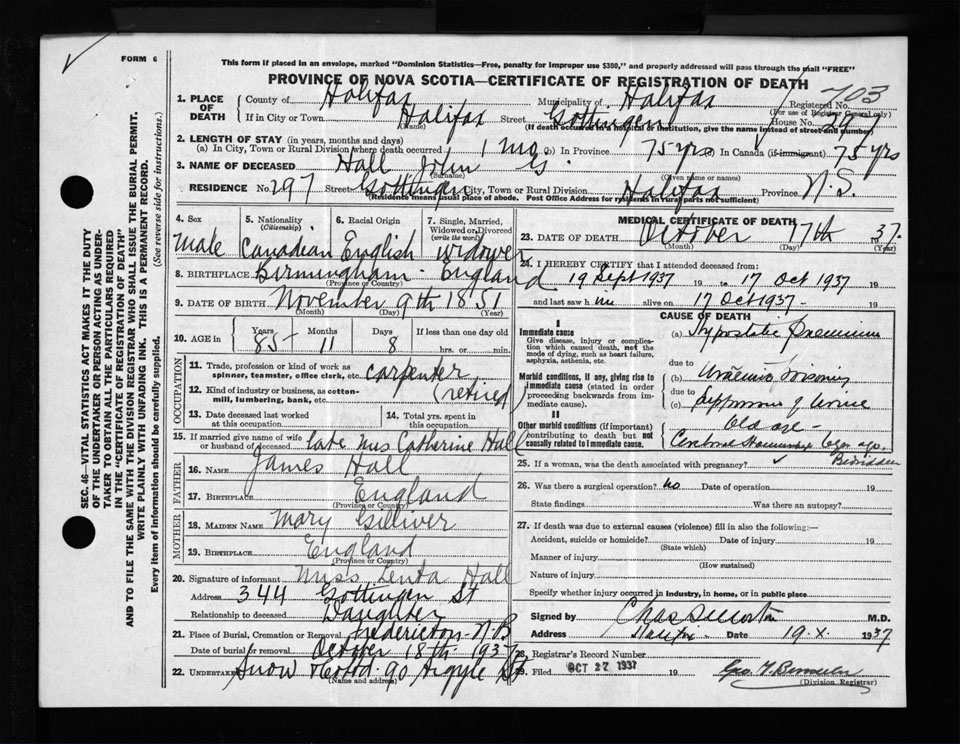 FORM 6
This form if placed in an envelope, marked "Dominion Statistics—Free, penalty for improper use $300," and properly addressed will pass through the mail "FREE"
PROVINCE OF NOVA SCOTIA—CERTIFICATE OF REGISTRATION OF DEATH
1. PLACE OF DEATH
County of Halifax Municipality of Halifax Registered No. 703
(For use of Registrar General only)
If in City or Town Halifax Street Gottingen House No. 297
(Name) (If death occurred in a hospital or institution, give the name instead of street and number)
2. LENGTH OF STAY (in years, months and days)
(a) In City, Town or Rural Division where death occurred 1 mo. (b) In Province 75 yrs (c) In Canada (if immigrant) 75 yrs
3. NAME OF DECEASED Hall John G.
(Surname) (Given name or names)
RESIDENCE No. 297 Street Gottingen City, Town or Rural Division Halifax Province N.S.
(Residence means usual place of abode. Post Office Address for residents in rural parts not sufficient)
4. Sex
Male
5. Nationality
(Citizenship)
Canadian
6. Racial Origin
English
7. Single, Married, Widowed or Divorced
(write the word)
Widower
8. BIRTHPLACE Birmingham England
(Province or Country)
9. DATE OF BIRTH November 9th 1851
(Month) (Day) (Year)
10. AGE in
Years 85
Months 11
Days 8
If less than one day old
hrs. or min.
OCCUPATION
11. Trade, profession or kind of work as spinner, teamster, office clerk, etc. carpenter
12. Kind of industry or business, as cotton-mill, lumbering, bank, etc. (retired)
13. Date deceased last worked at this occupation
14. Total yrs. spent in this occupation
15. If married give name of wife or husband of deceased late Mrs Catherine Hall
FATHER
16. NAME James Hall
17. BIRTHPLACE England
(Province or Country)
MOTHER
18. MAIDEN NAME Mary Gilliver
19. BIRTHPLACE England
(Province or Country)
20. Signature of informant Miss Hall
Address 344 Gottingen St
Relationship to deceased Daughter
21. Place of Burial, Cremation or Removal Fredericton N.B
Date of burial or removal October 18th 1937
22. UNDERTAKER Snow & Co Ltd. 90 Argyle St
(Name and address)
MEDICAL CERTIFICATE OF DEATH
23. DATE OF DEATH October 17th 1937.
(Month) (Day) (Year)
24. I HEREBY CERTIFY that I attended deceased from:
19 Sept 1937 19 to 17 Oct 1937 19
and last saw him alive on 17 Oct 1937 - 19
CAUSE OF DEATH
I
Immediate cause
Give disease, injury or complication which caused death, not the mode of dying, such as heart failure, asphyxia, asthenia, etc.
(a) Hypostatic
due to
Morbid conditions, if any, giving rise to immediate cause (stated in order proceeding backwards from immediate cause).
(b)
due to
(c) of Urine
II
Other morbid conditions (if important) contributing to death but not causally related to immediate cause.
Old age -
Bedridden
25. If a woman, was the death associated with pregnancy?
26. Was there a surgical operation? No Date of operation 19
State findings Was there an autopsy?
27. If death was due to external causes (violence) fill in also the following:
Accident, suicide or homicide? Date of injury 19
(State which)
Manner of injury
(How sustained)
Nature of injury
Specify whether injury occurred in industry, in home, or in public place
Signed by M.D.
Address Halifax Date 19.X. 1937
28. Registrar's Record Number
29. Filed OCT 27 1937 19
(Division Registrar)
SEC. 46—VITAL STATISTICS ACT MAKES IT THE DUTY
OF THE UNDERTAKER OR PERSON ACTING AS UNDER-
TAKER TO OBTAIN ALL THE PARTICULARS REQUIRED
IN THE "CERTIFICATE OF REGISTRATION OF DEATH"
AND TO FILE THE SAME WITH THE DIVISION REGISTRAR WHO SHALL ISSUE THE BURIAL PERMIT.
WRITE PLAINLY WITH UNFADING INK. THIS IS A PERMANENT RECORD.
Every item of information should be carefully supplied. (See reverse side for instructions.)